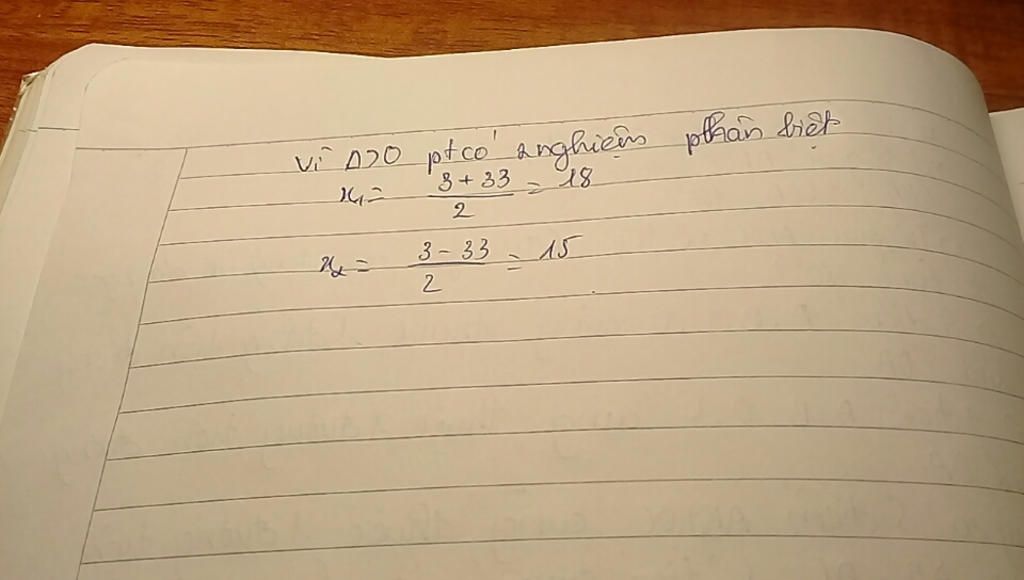 Vì Δ>0 pt có 2 nghiệm phân biệt
x₁ = (3 + 33)/2 = 18
x₂ = (3 - 33)/2 = 15